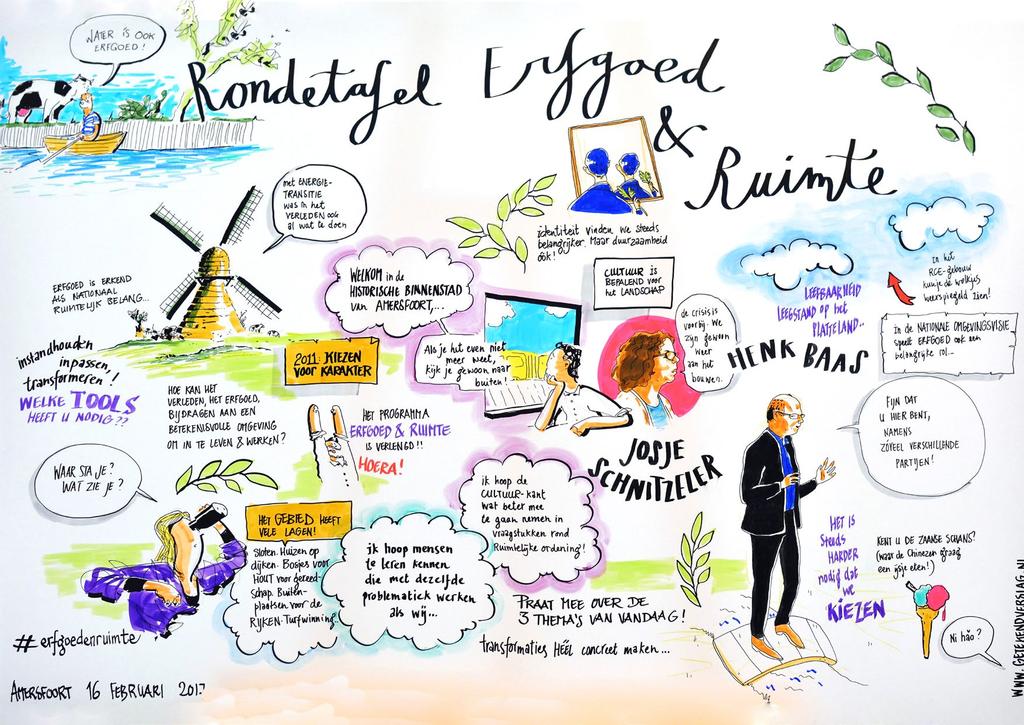 WATER IS OOK
ERFGOED!
Rondetafel Erfgoed
&
Ruimte
met ENERGIE-
TRANSITIE
was in het
VERLEDEN OOK
al wat te doen
identiteit vinden we steeds
belangrijker. Maar duurzaamheid
óók!
ERFGOED is ERKEND
ALS NATIONAAL
RUIMTELIJK BELANG...
WELKOM in de
HISTORISCHE BINNENSTAD
van AMERSFOORT,...
CULTUUR is
BEPALEND voor
het LANDSCHAP
LEEFBAARHEID
LEEGSTAND op het
PLATTELAND..
In het
RCE-gebouw
kun je de wolkjes
weerspiegeld zien!
in de NATIONALE OMGEVINGSVISIE
speelt ERFGOED ook een
belangrijke rol...
instandhouden
inpassen,
transformeren!
WELKE TOOLS
HEEFT U NODIG??
2011: KIEZEN
VOOR KARAKTER
Als je het even niet
meer weet,
kijk je gewoon naar
buiten!
de crisis is
voorbij. We
zijn gewoon
weer
aan het
bouwen.
HENK BAAS
HOE KAN HET
VERLEDEN, HET ERFGOED,
BIJDRAGEN AAN EEN
BETEKENISVOLLE OMGEVING
OM IN TE LEVEN & WERKEN?
HET PROGRAMMA
ERFGOED & RUIMTE
IS VERLENGD!!
HOERA!
JOSJE
SCHNITZELER
FIJN DAT
U HIER BENT,
NAMENS
ZÓVEEL VERSCHILLENDE
PARTIJEN!
WAAR STA JE?
WAT ZIE JE?
HET GEBIED HEEFT
VELE LAGEN!
Sloten. Huizen op
dijken. Bosjes voor
HOUT voor gereed-
schap. Buiten-
plaatsen voor de
RIJKEN. Turfwinning.
ik hoop mensen
te leren kennen
die met dezelfde
problematiek werken
als wij...
ik hoop de
CULTUUR-kant
wat beter mee
te gaan nemen in
vraagstukken rond
Ruimtelijke ordening!
PRAAT MEE OVER DE
3 THEMA'S VAN VANDAAG!
transformaties HÉÉL concreet maken...
HET IS
Steeds
HARDER
nodig dat
we
KIEZEN
KENT U DE ZAANSE SCHANS?
(waar de Chinezen graag
een ijsje eten!)
Ni hǎo?
#erfgoedenruimte
AMERSFOORT 16 FEBRUARI 2017
WWW.GETEKENDVERSLAG.NL